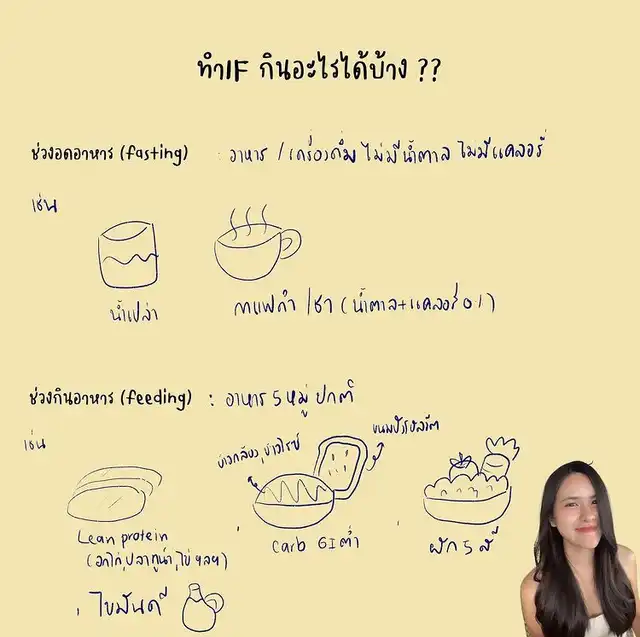 ทำIF กินอะไรได้บ้าง ??
ช่วงอดอาหาร (fasting) : อาหาร / เครื่องดื่ม ไม่มีน้ำตาล ไม่มีแคลอรี่
เช่น
น้ำเปล่า
กาแฟดำ /ชา (น้ำตาล+แคลอรี่ 0 !)
ช่วงกินอาหาร (feeding) : อาหาร 5 หมู่ ปกติ
เช่น
ข้าวกล้อง, ข้าวไรซ์
ขนมปังโฮลวีต
Lean protein
(อกไก่, ปลาทูน่า, ไข่ ฯลฯ)
, Carb GI ต่ำ
, ผัก 5 สี
, ไขมันดี